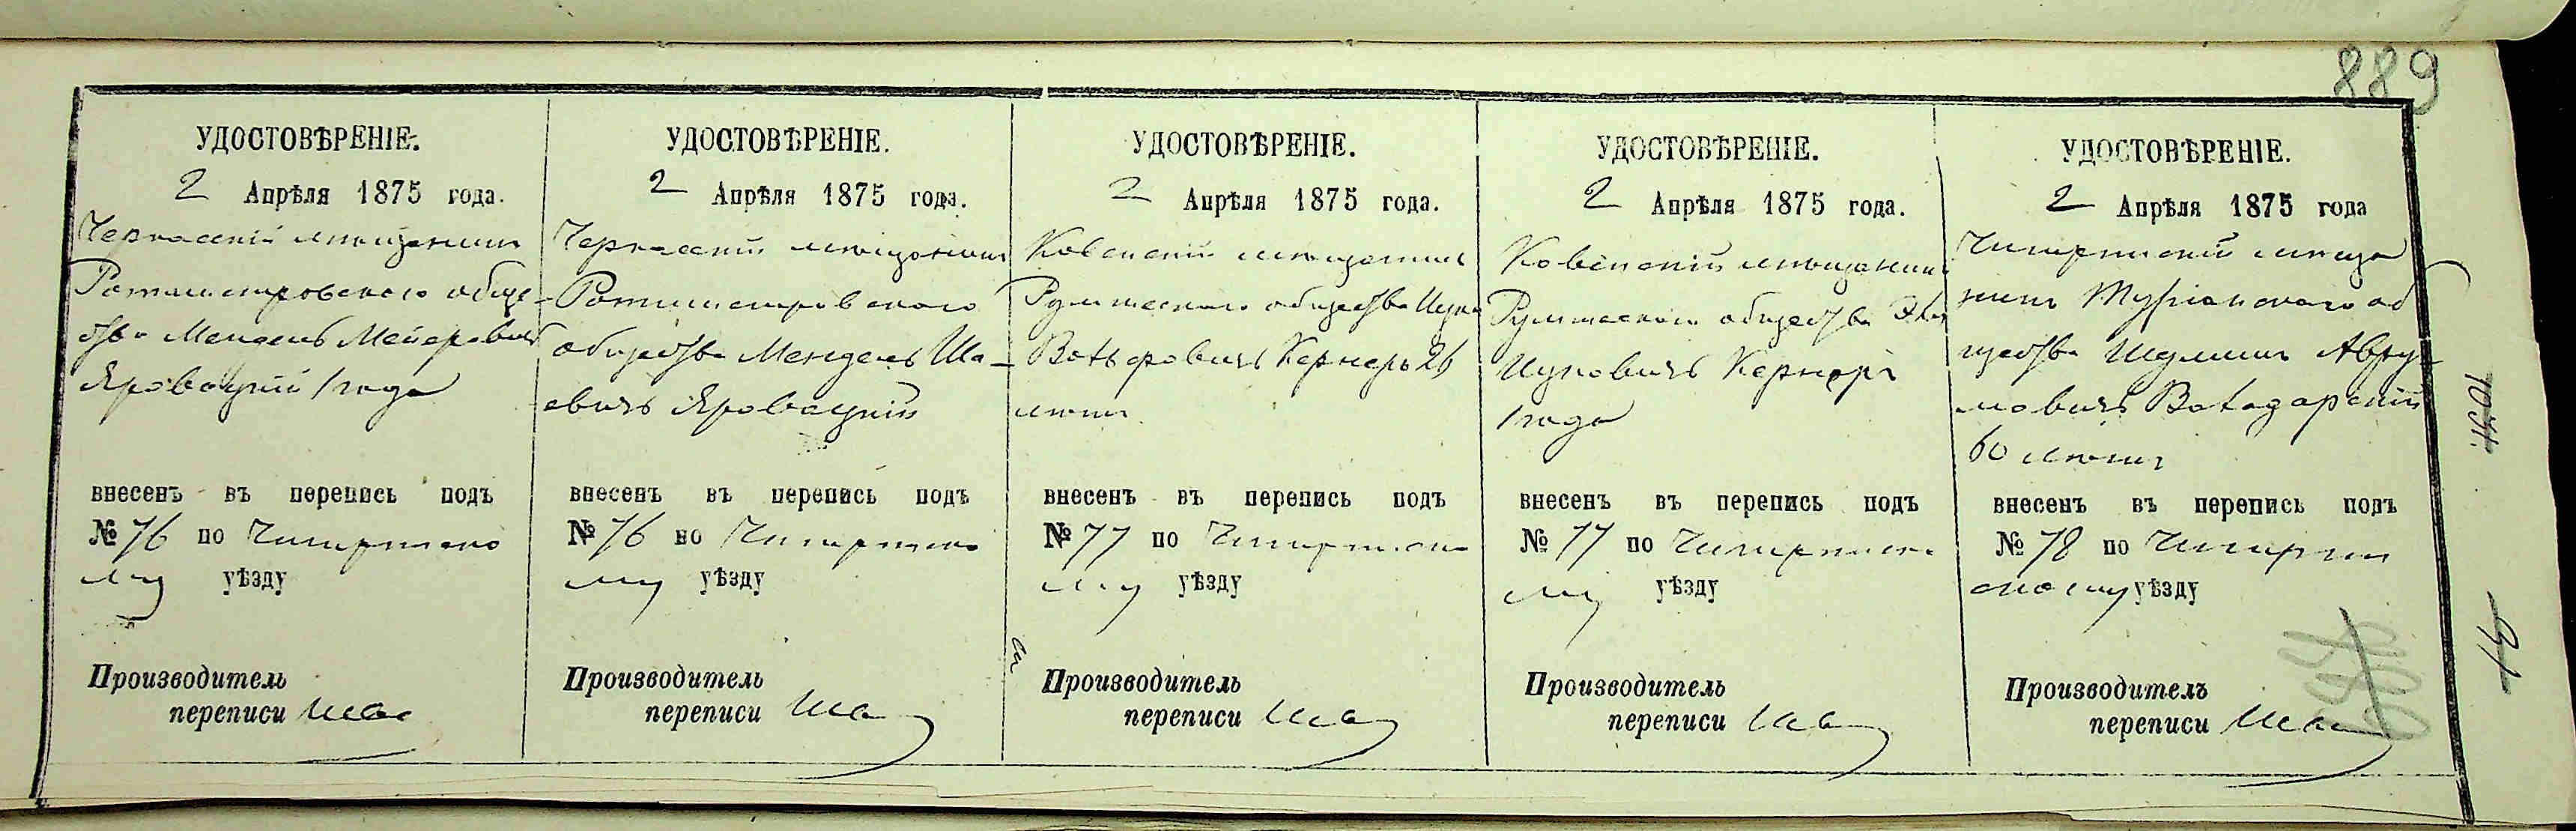 889
УДОСТОВѢРЕНІЕ.
2 Апрѣля 1875 года.
Черкасскій мѣщанинъ
Ротмистровского обще-
ства Мендель Мейеровичъ
Яровацкій 1 года
внесенъ въ перепись подъ
№ 76 по Чигиринско
му уѣзду
Производитель
переписи
УДОСТОВѢРЕНІЕ.
2 Апрѣля 1875 года.
Черкасскій мѣщанинъ
Ротмистровского
общества Мендель Ша-
евичъ Яровацкій
внесенъ въ перепись подъ
№ 76 по Чигиринско
му уѣзду
Производитель
переписи
УДОСТОВѢРЕНІЕ.
2 Апрѣля 1875 года.
Ковенскій мѣщанинъ
Румшескаго общества Ицко
Вольфовичъ Кернеръ 26
лѣтъ
внесенъ въ перепись подъ
№ 77 по Чигиринско
му уѣзду
Производитель
переписи
УДОСТОВѢРЕНІЕ.
2 Апрѣля 1875 года.
Ковенскій мѣщанинъ
Румшескаго общества
Ицковичъ Кернеръ
1 года
внесенъ въ перепись подъ
№ 77 по Чигиринско
му уѣзду
Производитель
переписи
УДОСТОВѢРЕНІЕ.
2 Апрѣля 1875 года
Чигиринскій мѣща
нинъ об
щества Шулимъ Авру
мовичъ
60 лѣтъ
внесенъ въ перепись подъ
№ 78 по Чигирин
скому уѣзду
Производитель
переписи